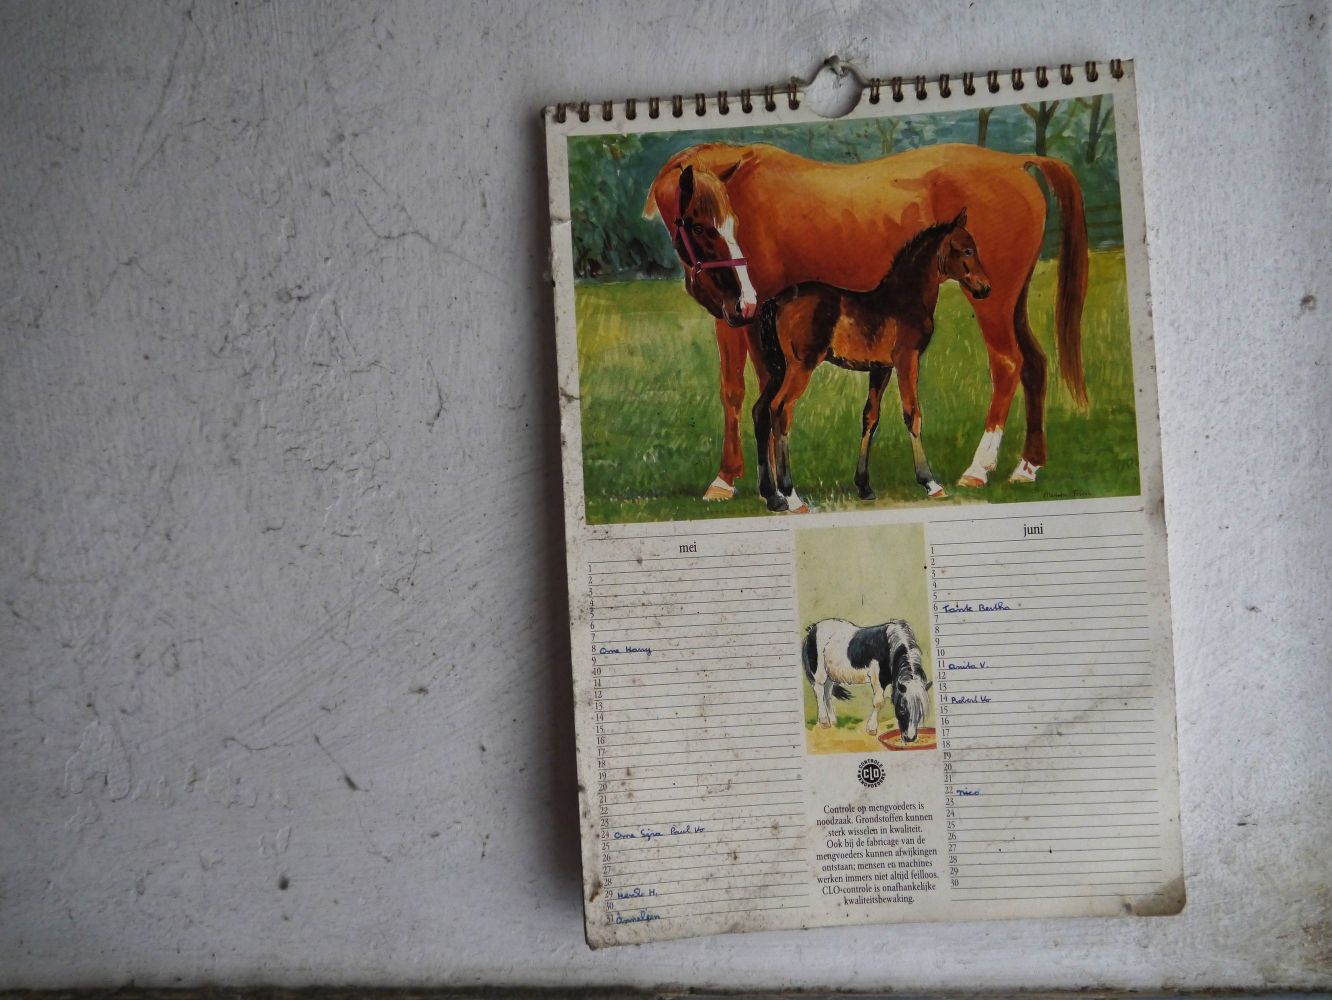 mei
1
2
3
4
5
6
7
8 Ome Harry
9
10
11
12
13
14
15
16
17
18
19
20
21
22
23
24 Ome Sjra Paul Vo
25
26
27
28
29 Henk H.
30
31 Annelien
CONTROLE
CLO
MENGVOEDERS
Controle op mengvoeders is
noodzaak. Grondstoffen kunnen
sterk wisselen in kwaliteit.
Ook bij de fabricage van de
mengvoeders kunnen afwijkingen
ontstaan; mensen en machines
werken immers niet altijd feilloos.
CLO-controle is onafhankelijke
kwaliteitsbewaking.
juni
1
2
3
4
5
6 Tante Bertha
7
8
9
10
11 Anita V.
12
13
14 Robert Vo
15
16
17
18
19
20
21
22 Nico
23
24
25
26
27
28
29
30